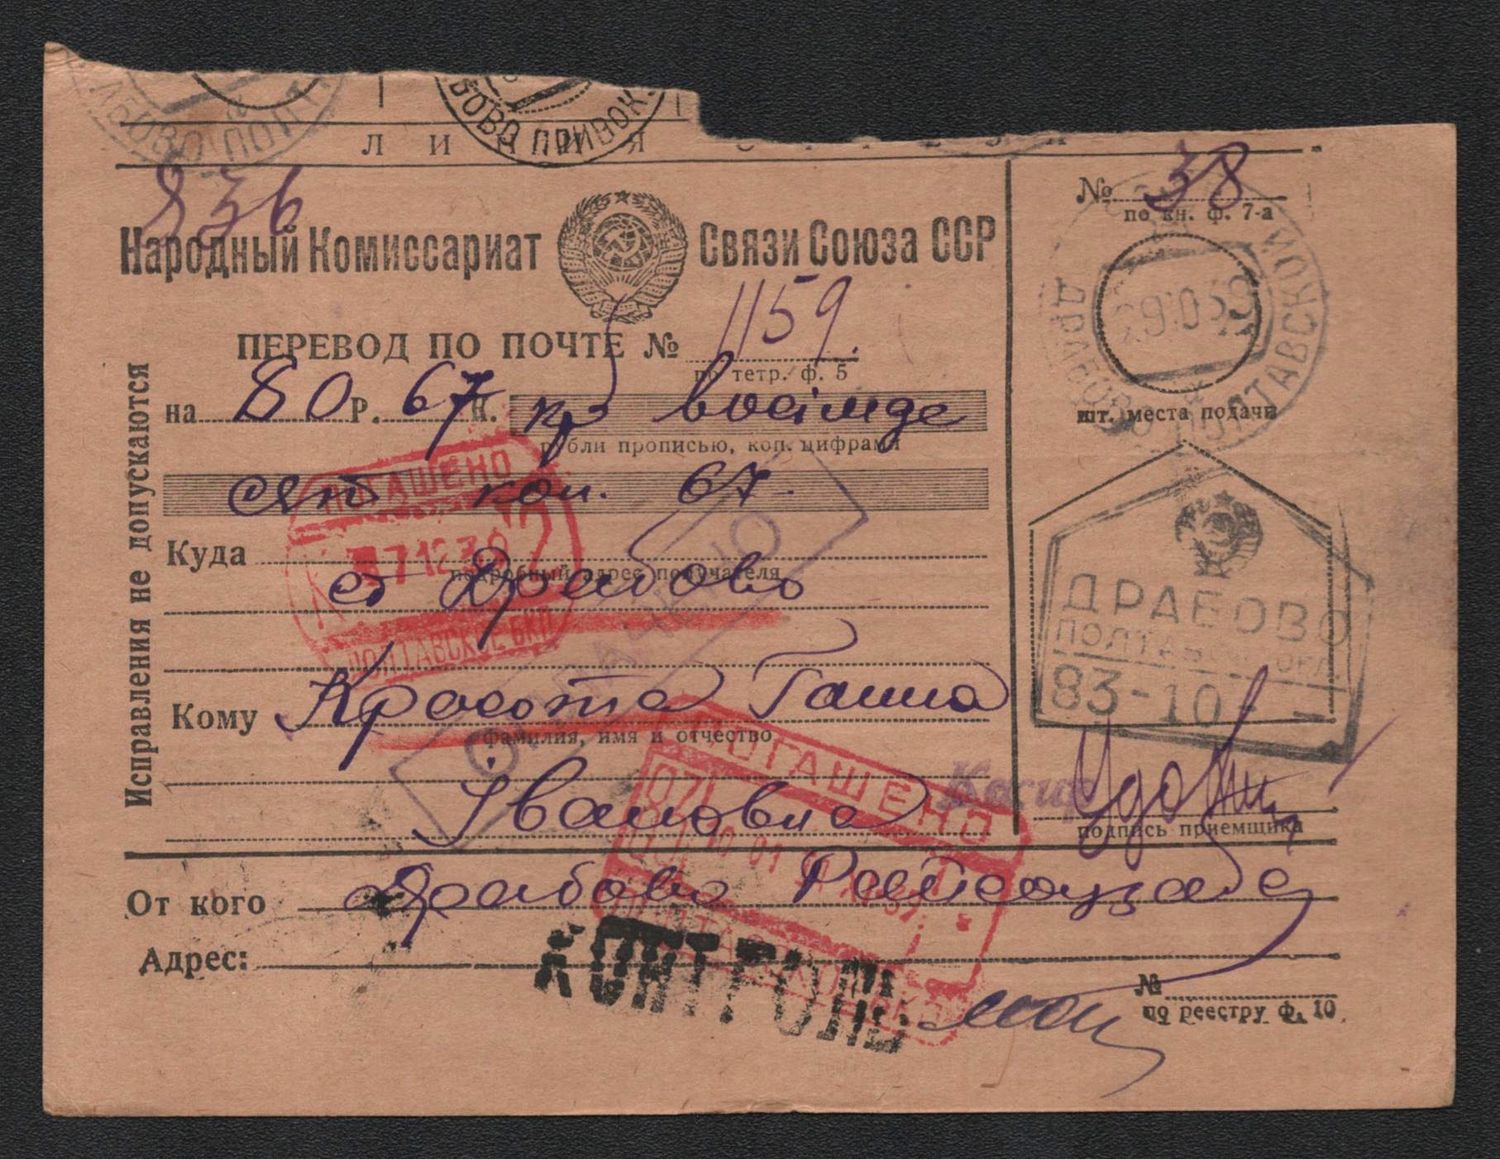 ЛБОВО ПОЛТ
БОВО ПРИВОК.
836
№ 38
по кн. ф. 7-а
Народный Комиссариат Связи Союза ССР
ПЕРЕВОД ПО ПОЧТЕ № 1159.
по тетр. ф. 5
на 80 Р. 67 К. кр восімде
рубли прописью, коп. цифрами
сят коп. 67
Исправления не допускаются
ПОГАШЕНО
ПОЛТАВСКОЕ БКП
Куда
подробный адрес получателя
ст Драбово
ОПЛАЧЕНО
Кому Красота Ганна
фамилия, имя и отчество
Івановна
ДРАБОВО ПОЛТАВСКОЙ
шт. места подачи
ДРАБОВО
ПОЛТАВСК. ОБЛ.
83-10
Касир
подпись приемщика
ПОГАШЕНО
От кого Драбово
Адрес:
КОНТРОЛЬ
№
по реестру ф. 10